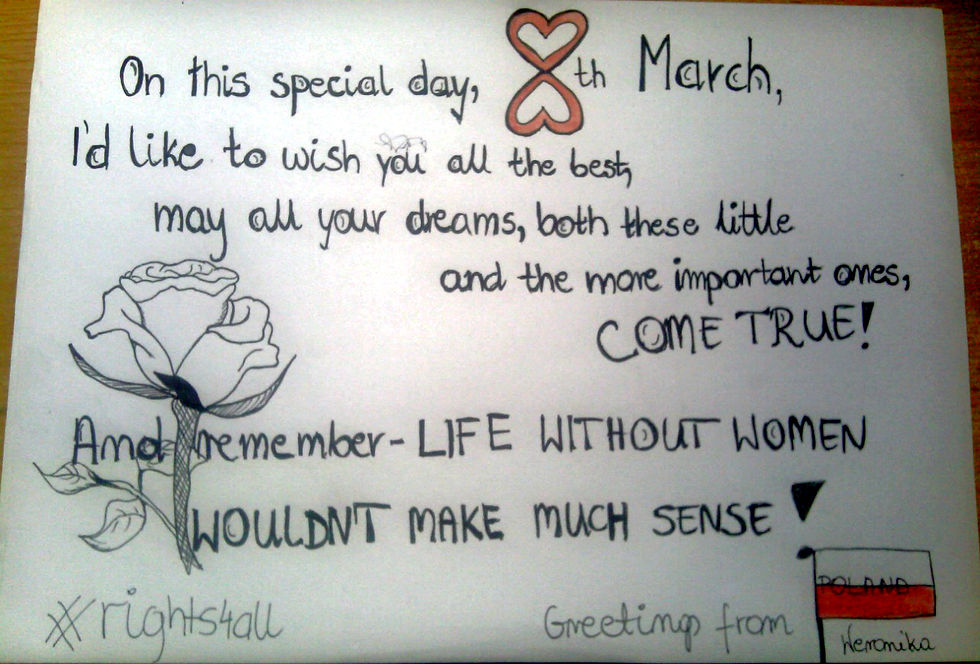 On this special day, 8th March,
I'd like to wish you all the best,
may all your dreams, both these little
and the more important ones,
COME TRUE!
And remember - LIFE WITHOUT WOMEN
WOULDNT MAKE MUCH SENSE!
#rights4all
Greetings from
POLAND
Weronika